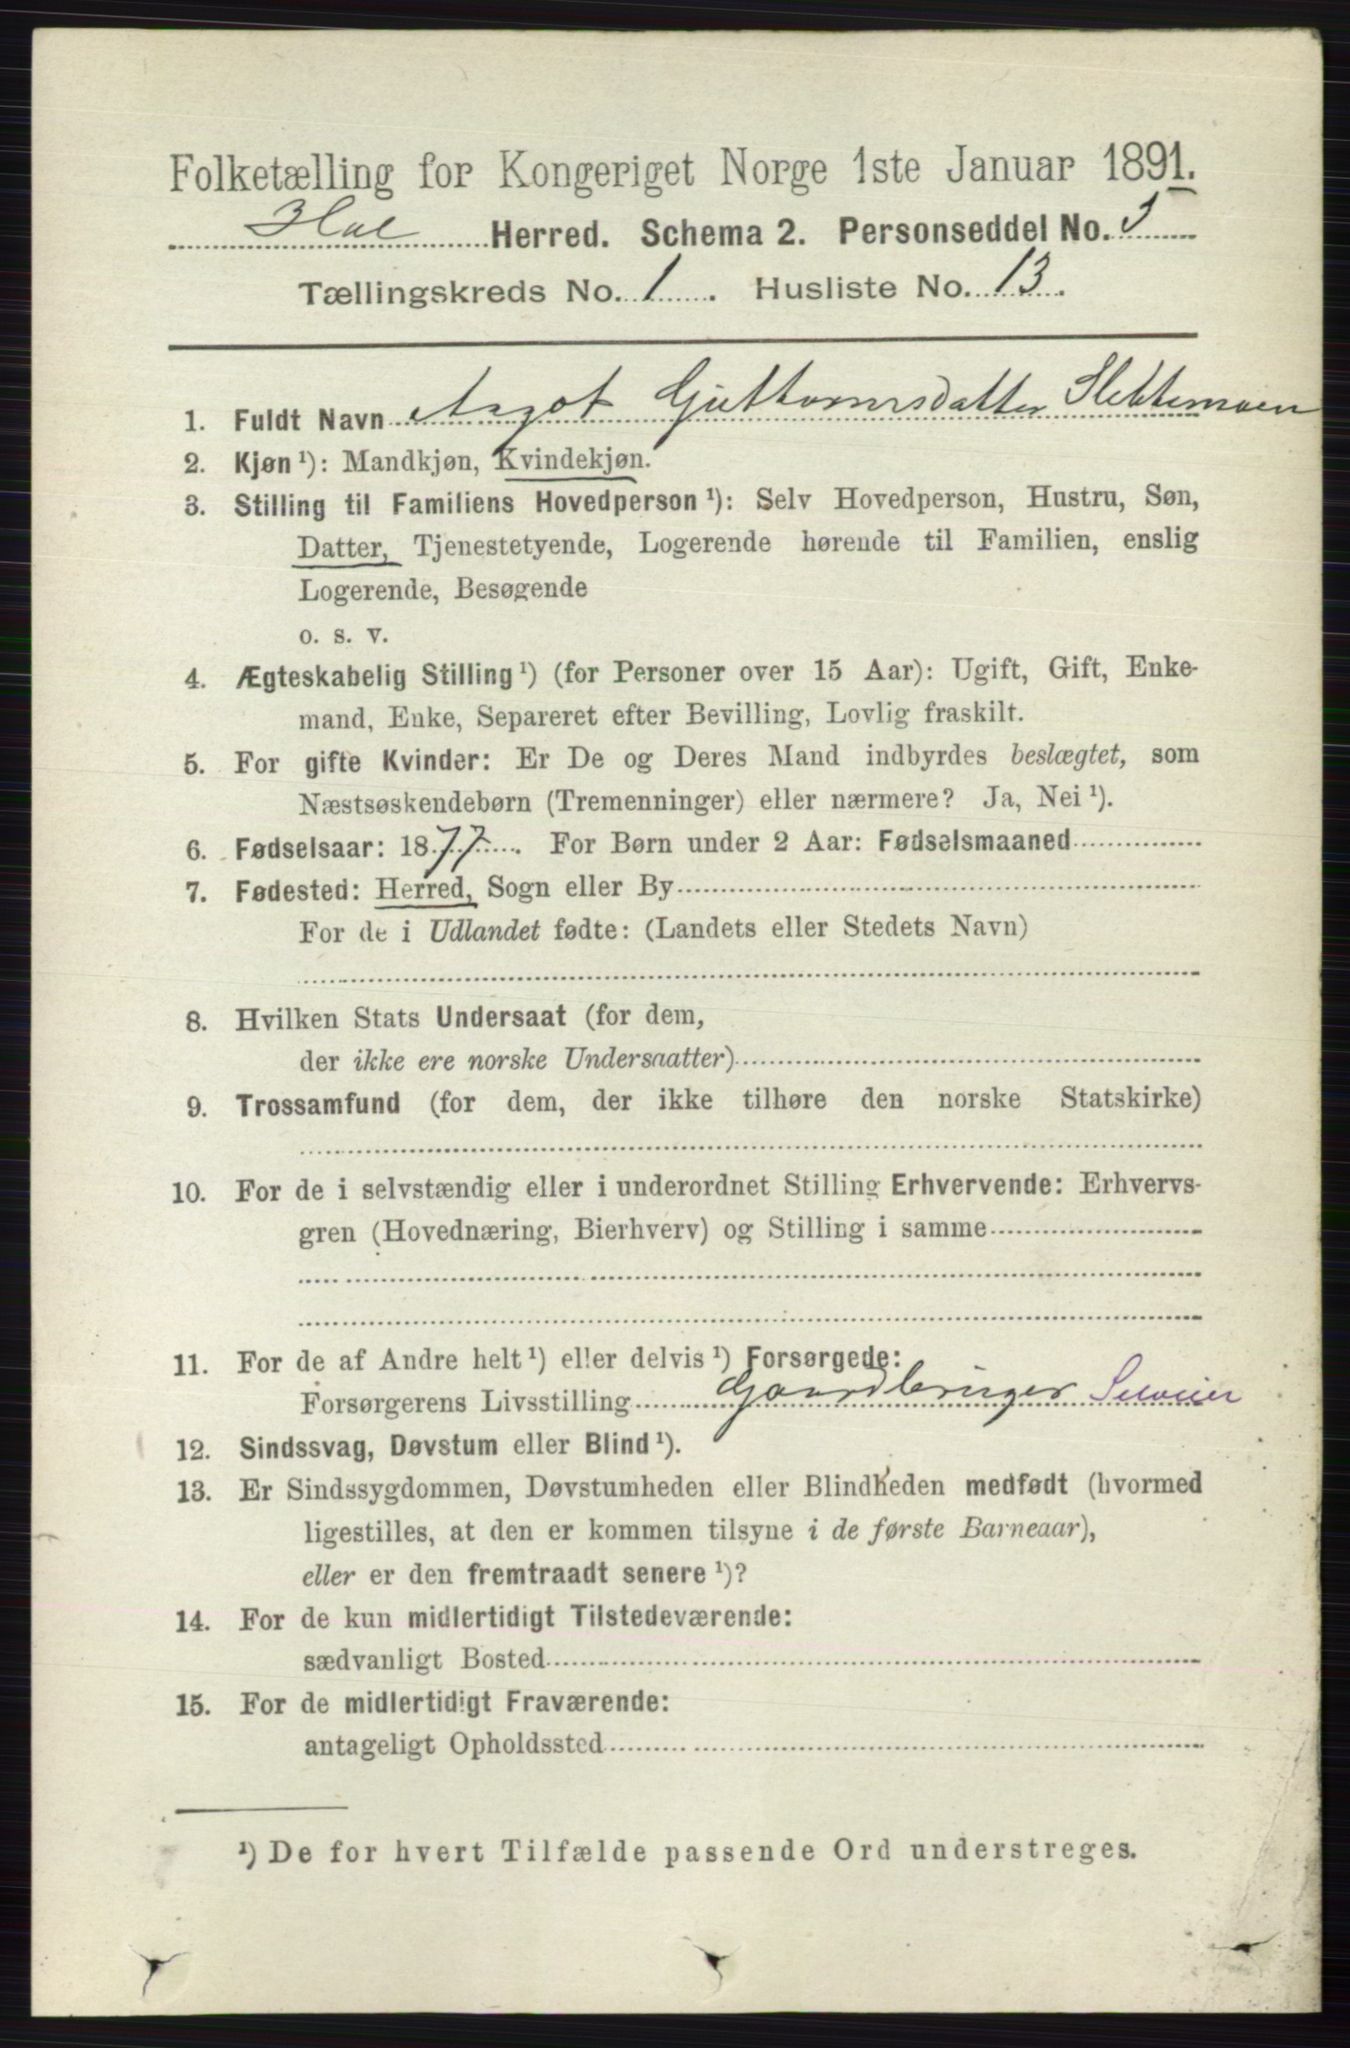 Folketælling for Kongeriget Norge 1ste Januar 1891.
Hol Herred. Schema 2. Personseddel No. 3
Tællingskreds No. 1. Husliste No. 13.
1. Fuldt Navn Aagot Guttormsdatter Slettemoen
2. Kjøn¹): Mandkjøn, Kvindekjøn.
3. Stilling til Familiens Hovedperson¹): Selv Hovedperson, Hustru, Søn,
Datter, Tjenestetyende, Logerende hørende til Familien, enslig
Logerende, Besøgende
o. s. v.
4. Ægteskabelig Stilling¹) (for Personer over 15 Aar): Ugift, Gift, Enke-
mand, Enke, Separeret efter Bevilling, Lovlig fraskilt.
5. For gifte Kvinder: Er De og Deres Mand indbyrdes beslægtet, som
Næstsøskendebørn (Tremenninger) eller nærmere? Ja, Nei¹).
6. Fødselsaar: 1877. For Børn under 2 Aar: Fødselsmaaned
7. Fødested: Herred, Sogn eller By
For de i Udlandet fødte: (Landets eller Stedets Navn)
8. Hvilken Stats Undersaat (for dem,
der ikke ere norske Undersaatter)
9. Trossamfund (for dem, der ikke tilhøre den norske Statskirke)
10. For de i selvstændig eller i underordnet Stilling Erhvervende: Erhvervs-
gren (Hovednæring, Bierhverv) og Stilling i samme
11. For de af Andre helt¹) eller delvis¹) Forsørgede:
Forsørgerens Livsstilling Gaardbruger Selveier
12. Sindssvag, Døvstum eller Blind¹).
13. Er Sindssygdommen, Døvstumheden eller Blindheden medfødt (hvormed
ligestilles, at den er kommen tilsyne i de første Barneaar),
eller er den fremtraadt senere¹)?
14. For de kun midlertidigt Tilstedeværende:
sædvanligt Bosted
15. For de midlertidigt Fraværende:
antageligt Opholdssted
¹) De for hvert Tilfælde passende Ord understreges.